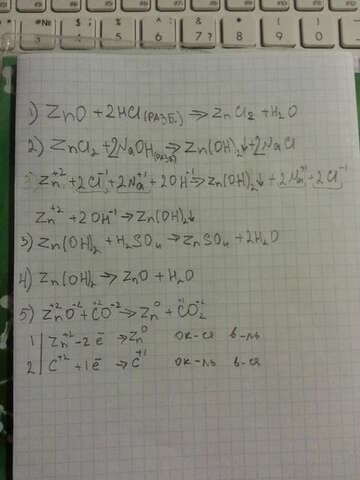 1) ZnO + 2HCl (РАЗБ.) → ZnCl₂ + H₂O
2) ZnCl₂ + 2NaOH (РАЗБ) → Zn(OH)₂↓ + 2NaCl
Zn⁺² + 2Cl⁻¹ + 2Na⁺¹ + 2OH⁻¹ → Zn(OH)₂↓ + 2Na⁺¹ + 2Cl⁻¹
Zn⁺² + 2OH⁻¹ → Zn(OH)₂↓
3) Zn(OH)₂ + H₂SO₄ → ZnSO₄ + 2H₂O
4) Zn(OH)₂ → ZnO + H₂O
5) Zn⁺²O⁻² + C⁺²O⁻² → Zn⁰ + C⁺¹O₂⁻²
1 | Zn⁺² - 2ē → Zn⁰ ок-ся в-ль
2 | C⁺² + 1ē → C⁺¹ ок-ль в-ся